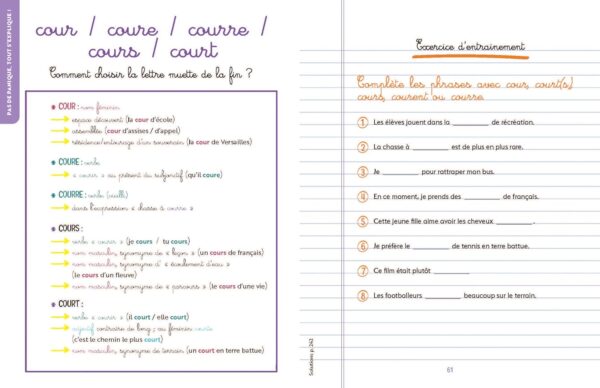 PAS DE PANIQUE, TOUT S'EXPLIQUE !
cour / coure / courre /
cours / court
Comment choisir la lettre muette de la fin ?
COUR : nom féminin
espace découvert (la cour d'école)
assemblée (cour d'assises / d'appel)
résidence/entourage d'un souverain (la cour de Versailles)
COURE : verbe
« courir » au présent du subjonctif (qu'il coure)
COURRE : verbe (vieilli)
dans l'expression « chasse à courre »
COURS :
verbe « courir » (je cours / tu cours)
nom masculin, synonyme de « leçon » (un cours de français)
nom masculin, synonyme d' « écoulement d'eau »
(le cours d'un fleuve)
nom masculin, synonyme de « parcours » (le cours d'une vie)
COURT :
verbe « courir » (il court / elle court)
adjectif contraire de long ; au féminin courte
(c'est le chemin le plus court)
nom masculin, synonyme de terrain (un court en terre battue)
Exercice d'entrainement
Complète les phrases avec cour, court(s)
cours, courent ou courre.
1 Les élèves jouent dans la __________ de récréation.
2 La chasse à __________ est de plus en plus rare.
3 Je __________ pour rattraper mon bus.
4 En ce moment, je prends des __________ de français.
5 Cette jeune fille aime avoir les cheveux __________ .
6 Je préfère le __________ de tennis en terre battue.
7 Ce film était plutôt __________
8 Les footballeurs __________ beaucoup sur le terrain.
Solutions p.242
61